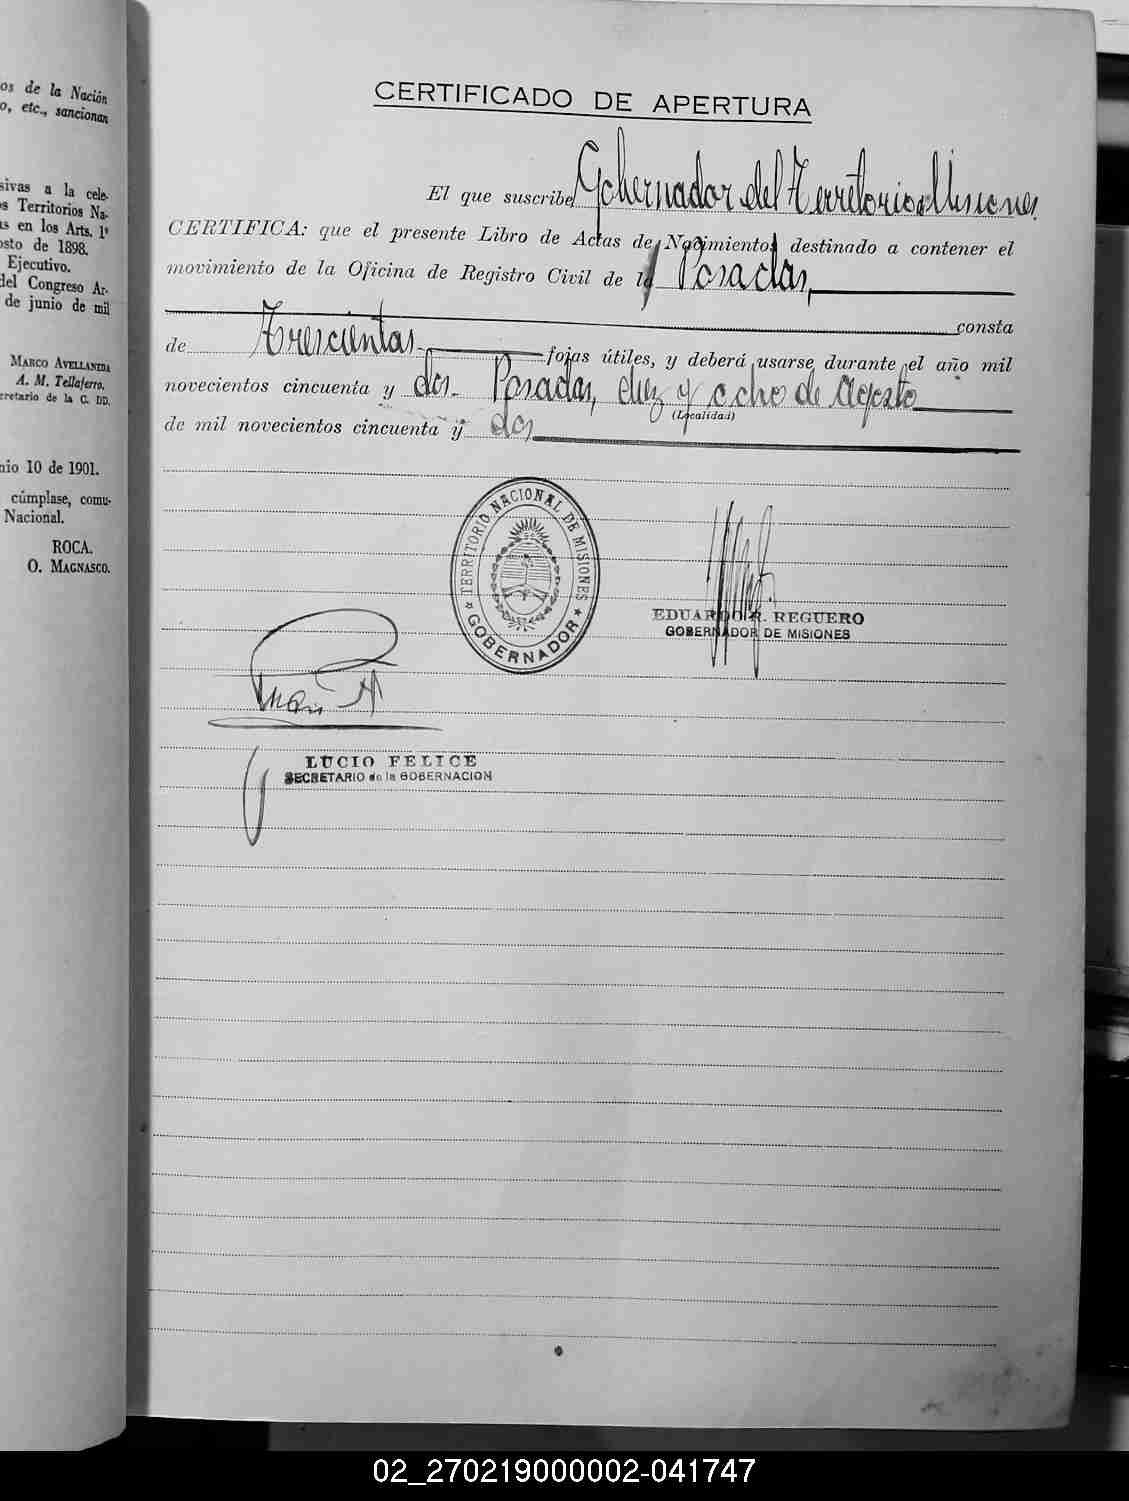 os de la Nación
o, etc., sancionan
sivas a la cele-
os Territorios Na-
as en los Arts. 1º
osto de 1898.
Ejecutivo.
del Congreso Ar-
de junio de mil
MARCO AVELLANEDA
A. M. Tellaferro.
cretario de la C. DD.
nio 10 de 1901.
cúmplase, comu-
Nacional.
ROCA.
O. MAGNASCO.
CERTIFICADO DE APERTURA
El que suscribe, Gobernador del Territorio de Misiones.
CERTIFICA: que el presente Libro de Actas de Nacimientos destinado a contener el
movimiento de la Oficina de Registro Civil de la Posadas,
consta
de Trescientas fojas útiles, y deberá usarse durante el año mil
novecientos cincuenta y dos. Posadas, diez y ocho de Agosto
(Localidad)
de mil novecientos cincuenta y dos
TERRITORIO NACIONAL DE MISIONES
GOBERNADOR
EDUARDO R. REGUERO
GOBERNADOR DE MISIONES
LUCIO FELICE
SECRETARIO de la GOBERNACION
02_270219000002-041747